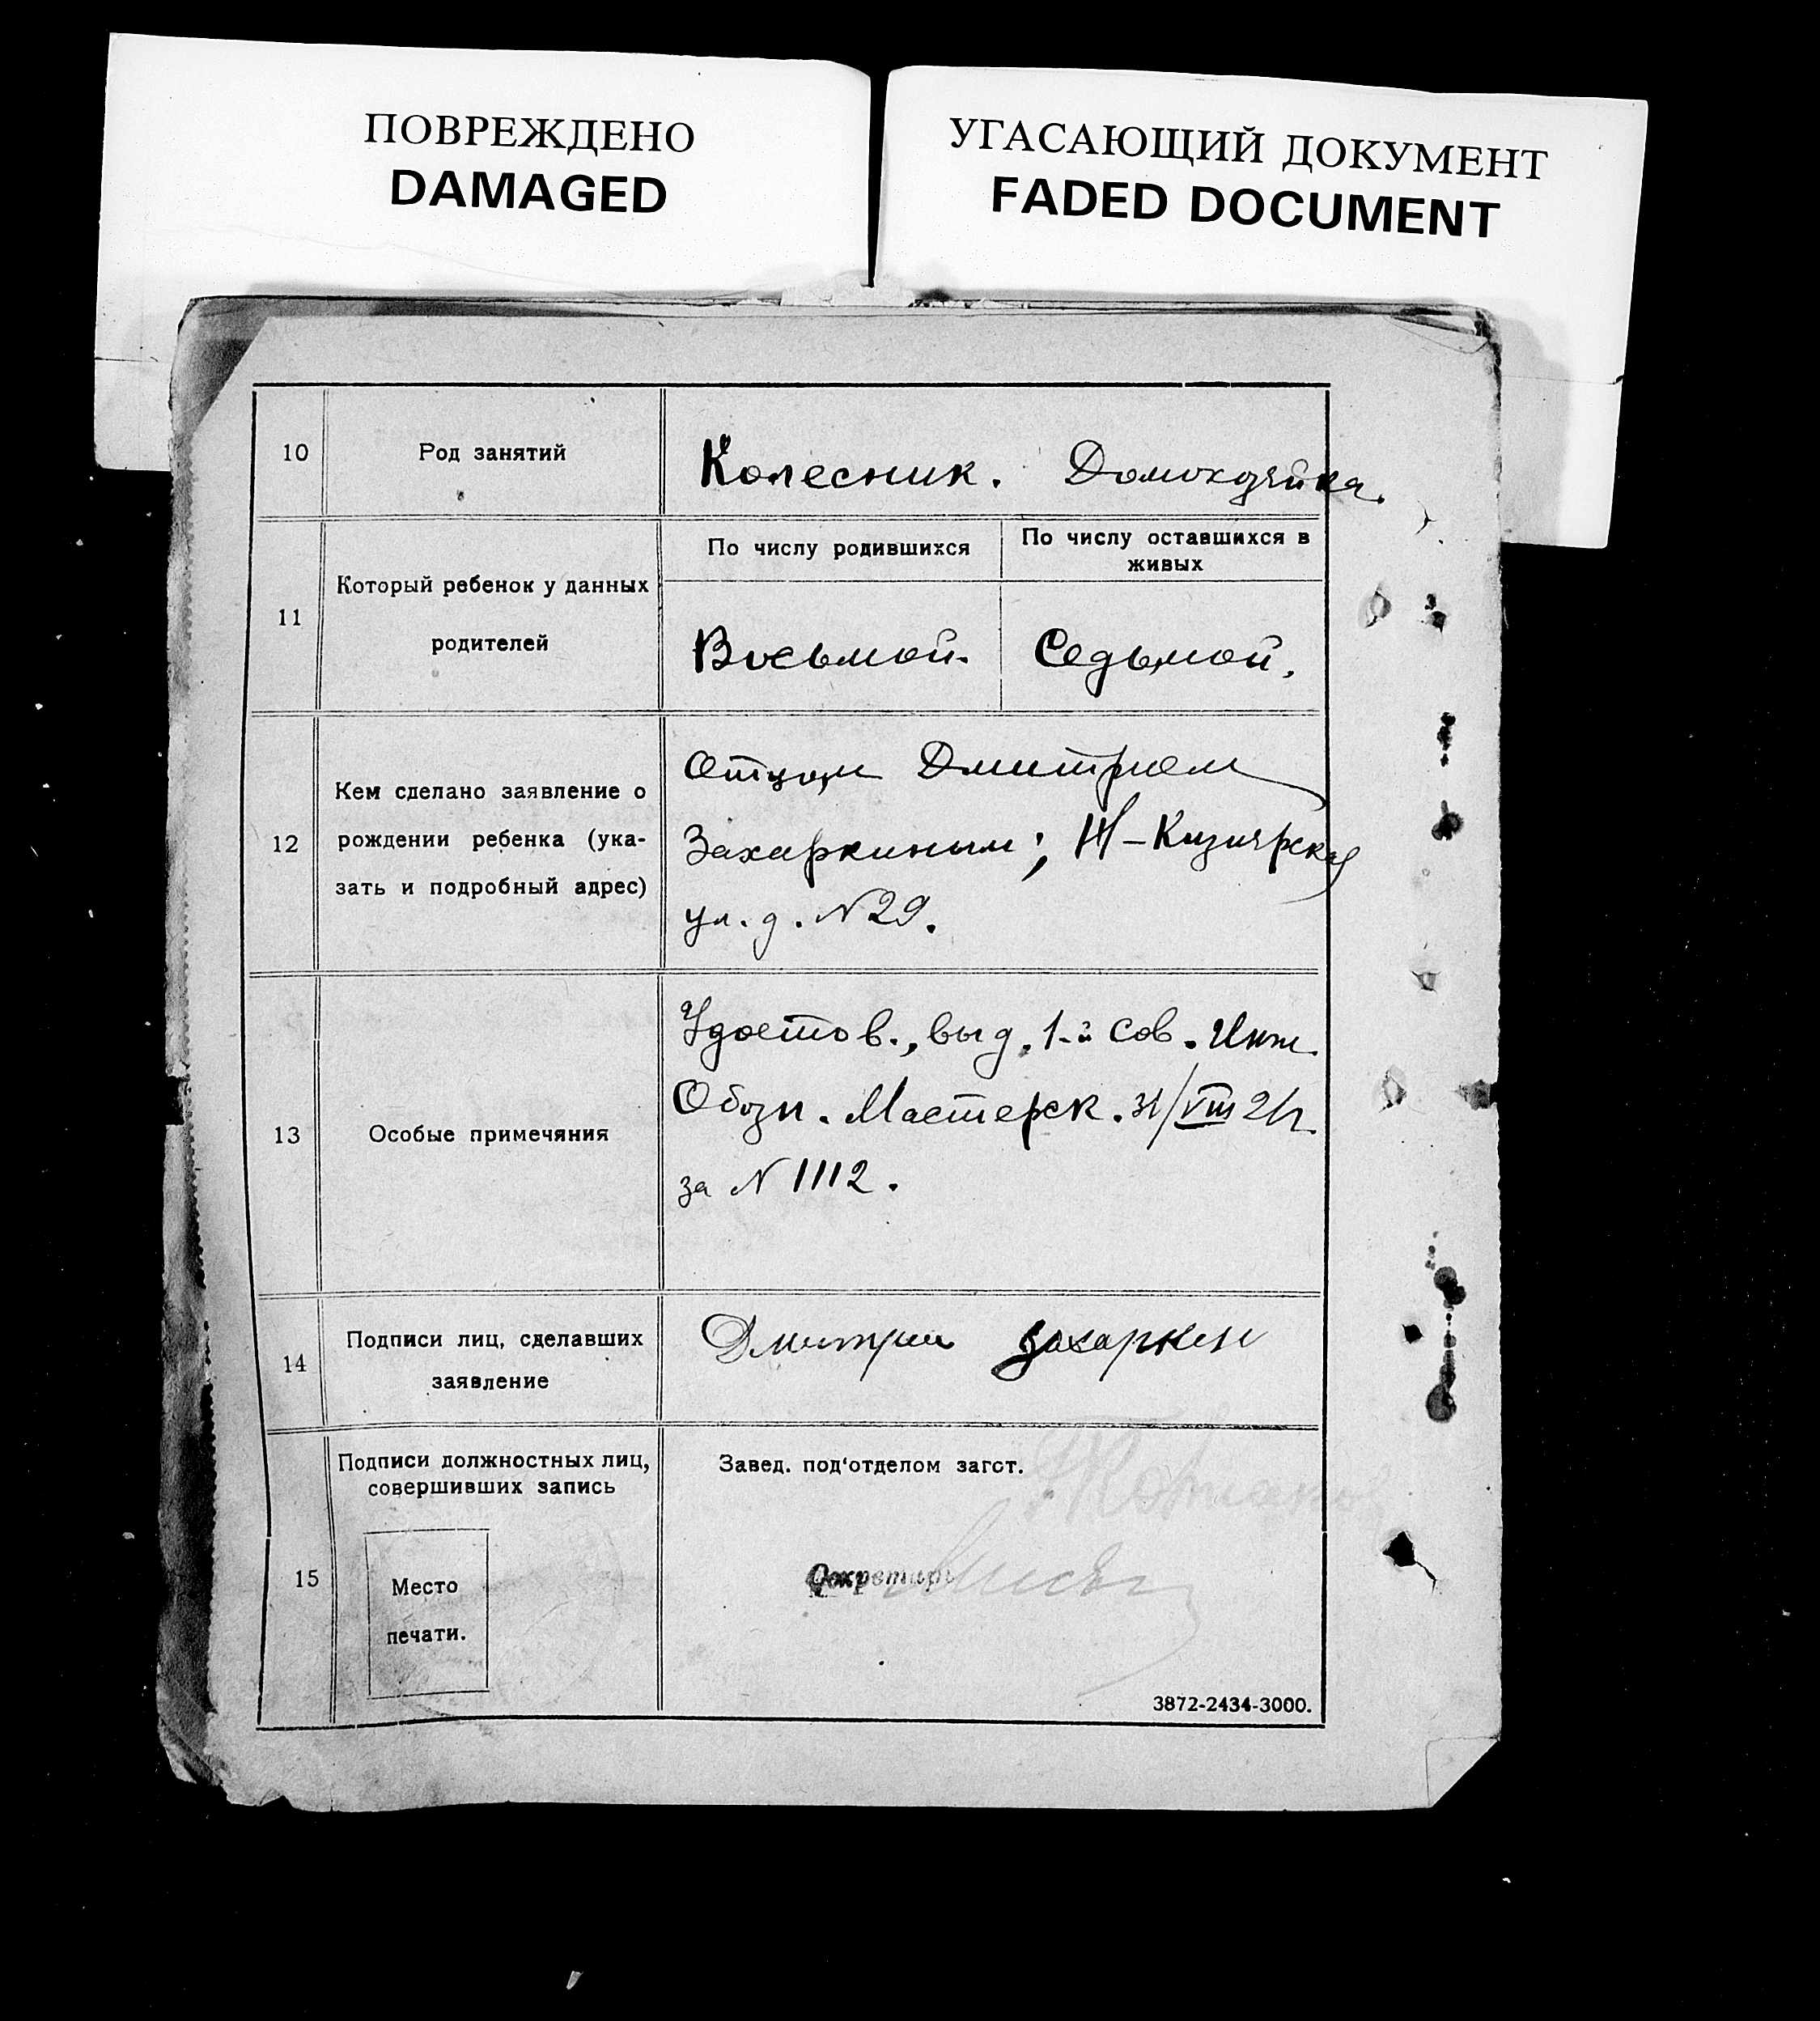 ПОВРЕЖДЕНО
DAMAGED
УГАСАЮЩИЙ ДОКУМЕНТ
FADED DOCUMENT
10
Род занятий
Колесник. Домохозяйка.
11
Который ребенок у данных
родителей
По числу родившихся
По числу оставшихся в
живых
Восьмой.
Седьмой.
12
Кем сделано заявление о
рождении ребенка (ука-
зать и подробный адрес)
Отцом Дмитрием
Захаркиным;
ул. д. № 29.
13
Особые примечяния
Удостов., выд. 1-й Сов. Инж.
Обозн. Мастерск. 31/VIII 21г.
за № 1112.
14
Подписи лиц, сделавших
заявление
Дмитрий Захаркин
15
Подписи должностных лиц,
совершивших запись
Место
печати.
Завед. под‘отделом загст.
Секретарь
3872-2434-3000.